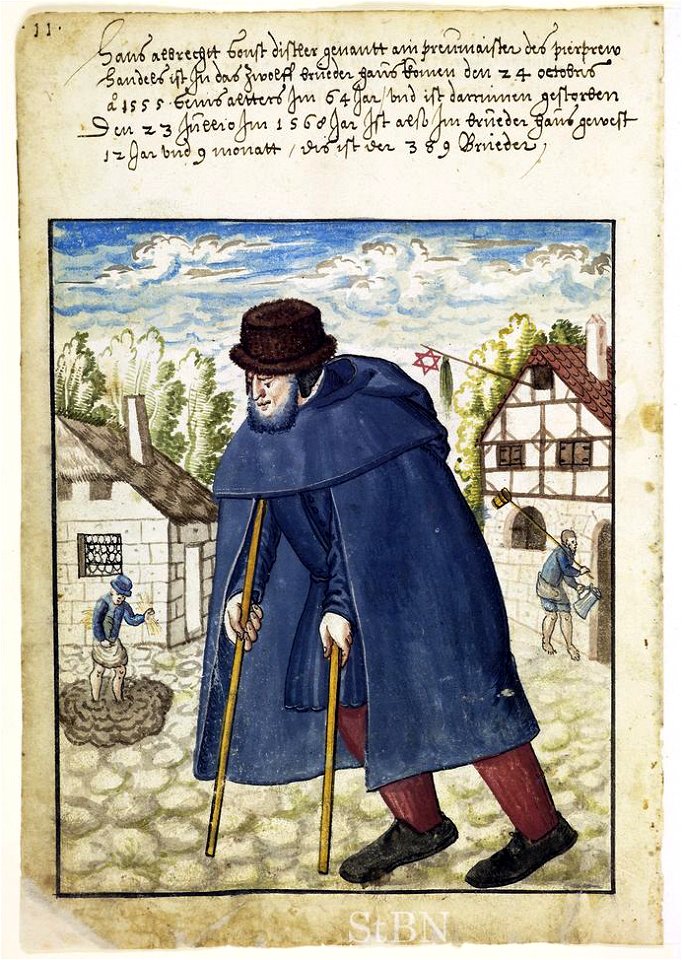 11.
Hans albrecht sonst distler genantt ain preumaister des pierprew
handels ist In das zwolff brueder haus komen den 24 octobris
a° 1555 seins altters Im 64 Jar / vnd ist darinnen gestorben
Den 23 Jullio Im 1568 Jar Ist also Im brueder haus gewest
12 Jar vnd 9 monatt / dis ist der 389 Brueder /
StBN